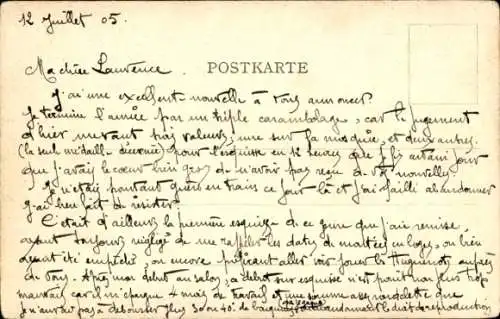 12 Juillet 05.
Ma chère Laurence.
POSTKARTE
J'ai une excellente nouvelle à vous annoncer.
Je termine l'année par un triple carambolage, car le jugement
d'hier me vaut trois valeurs, une sur la mosquée, et deux autres
(la seule médaille décernée) pour l'esquisse en 12 heures que je fis avant jour
que j'avais le coeur bien gros de n'avoir pas reçu de vos nouvelles
Je n'étais pourtant guère en train ce jour là et j'ai failli abandonner
j'ai bien fait de résister.
C'était d'ailleurs la première esquisse de ce genre que j'aie remise,
ayant toujours négligé de me rappeler les dates de montées en loges, ou bien
ayant été empêché, ou encore préférant aller voir jouer les Huguenots auprès
de vous. Après mon début au salon, ce début sur esquisse n'est pourtant pas trop
mauvais car il m'épargne 4 mois de travail et une somme assez rondelette que
je n'aurai pas à débourser plus 30 ou 40 f. de